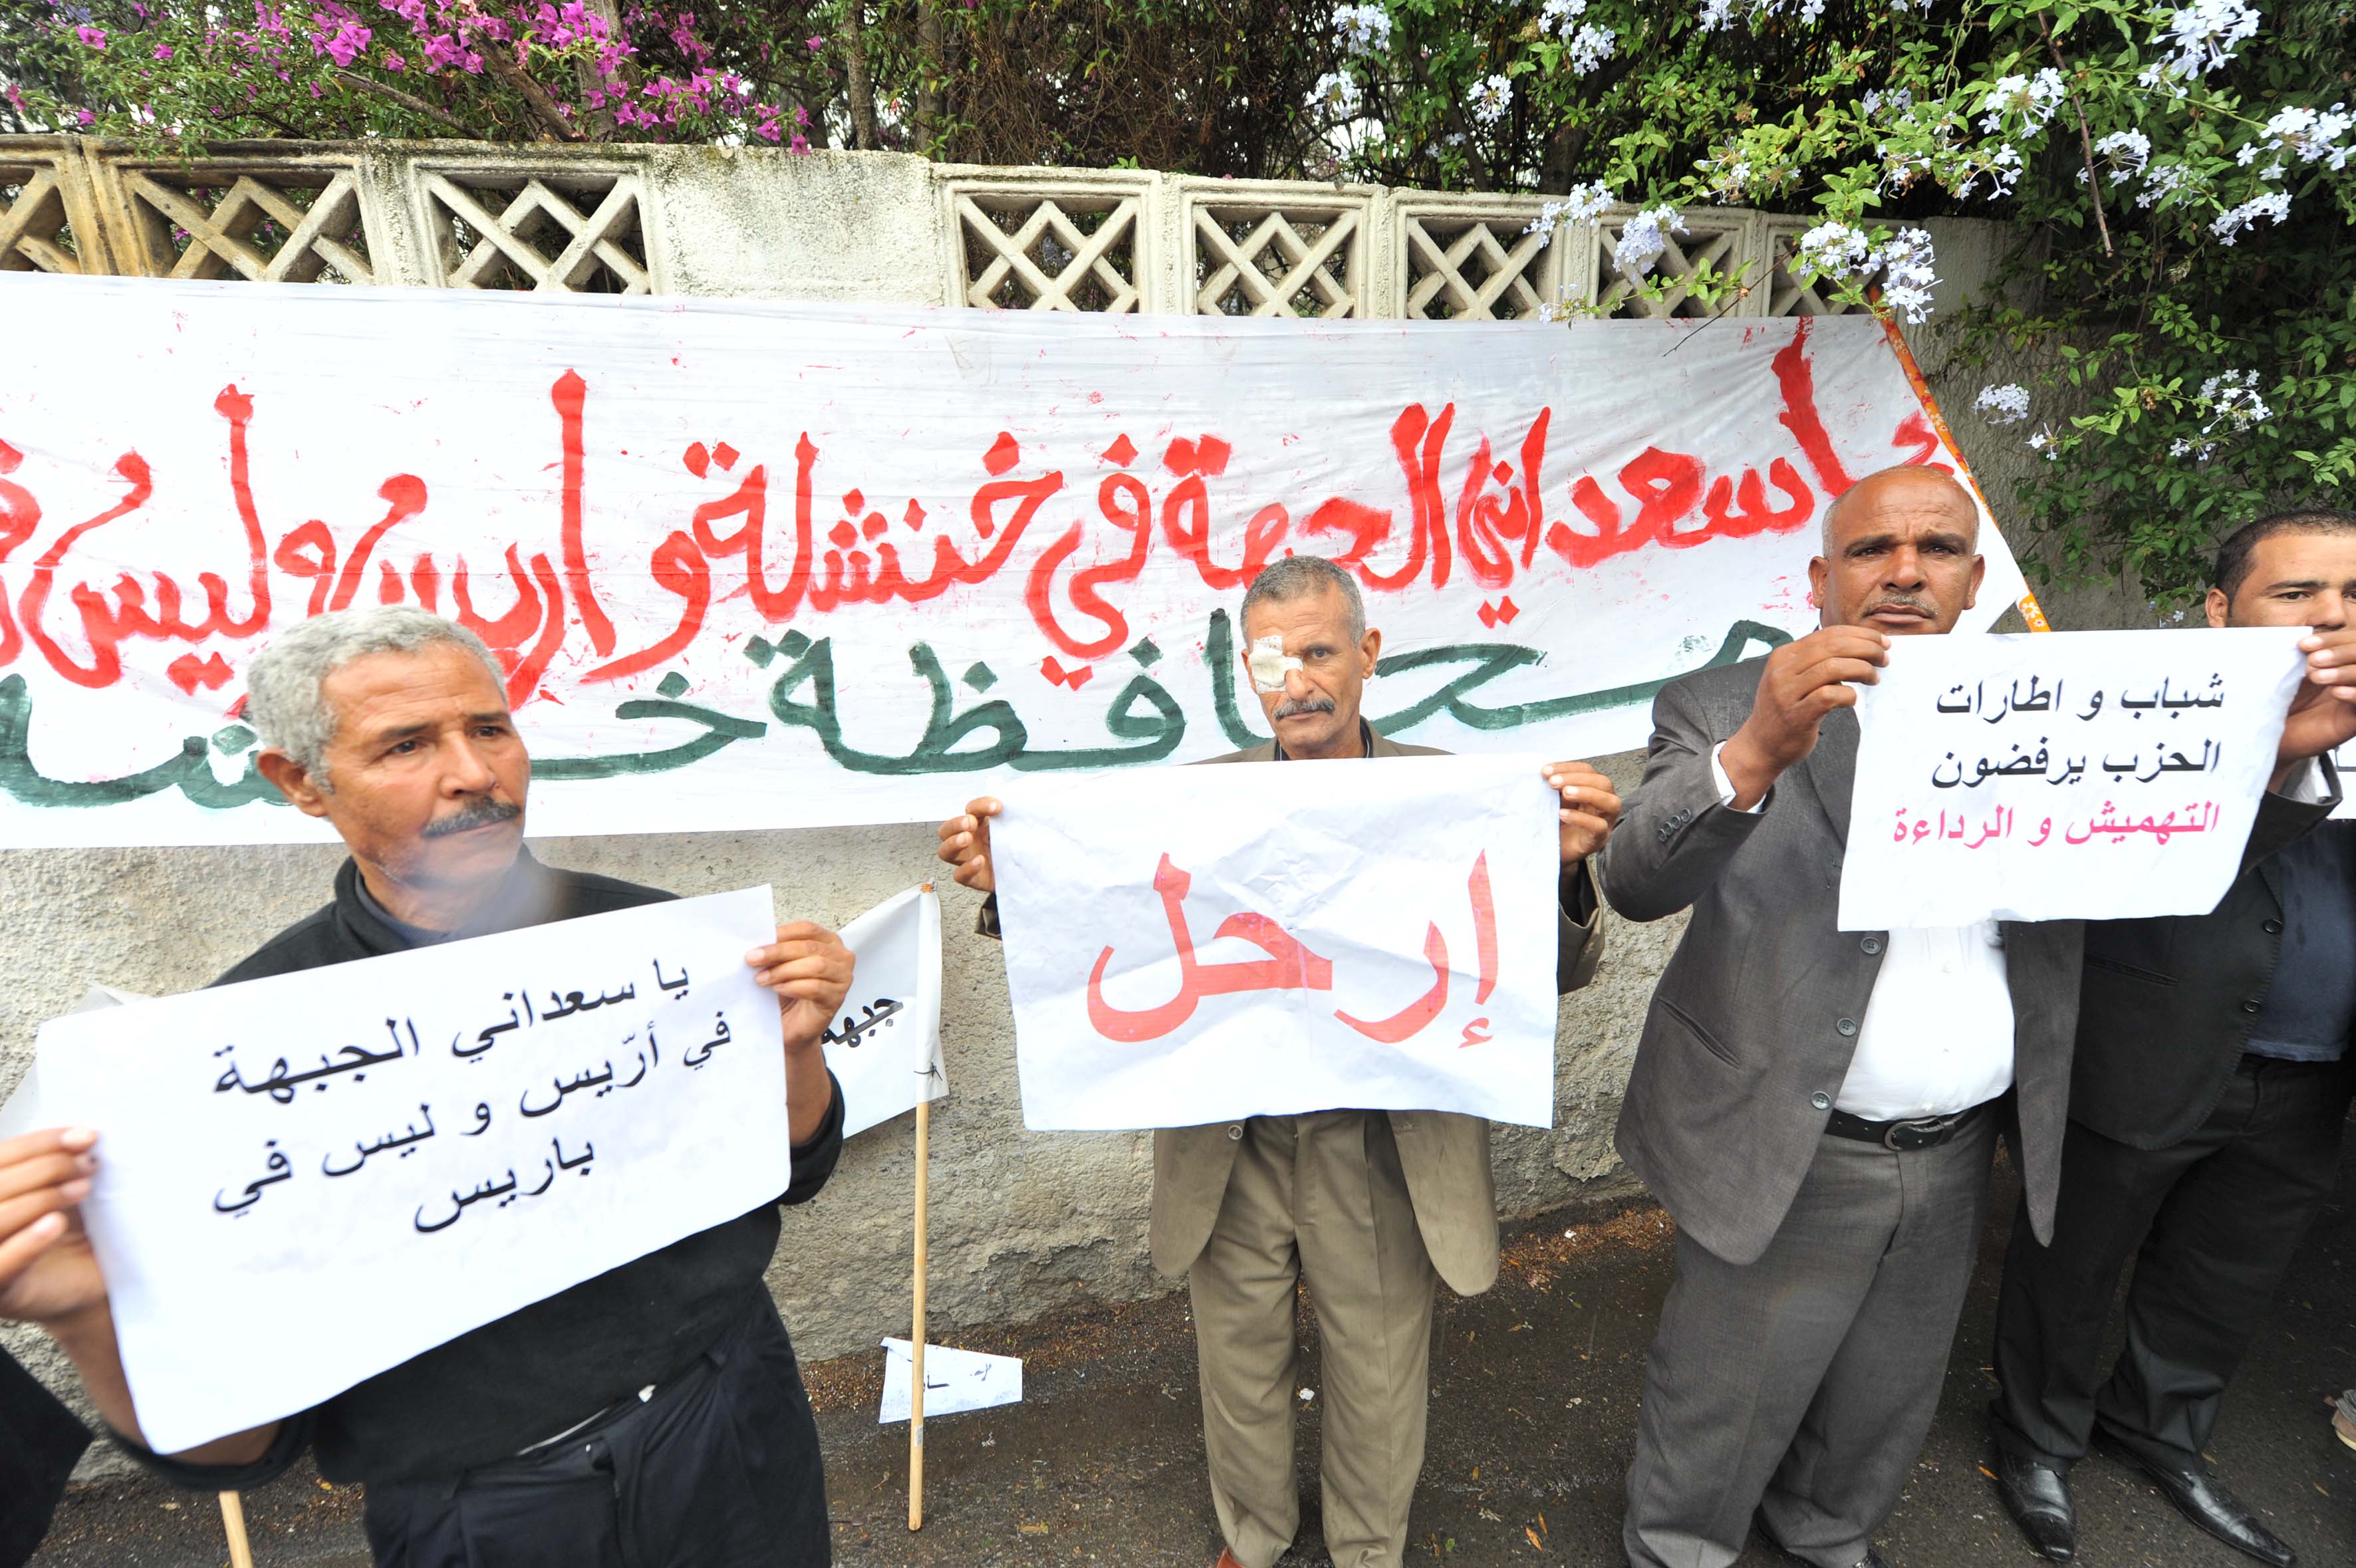 يا سعداني الجبهة في خنشلة و أريس و ليس في
محافظة خنشلة
يا سعداني الجبهة
في أرّيس و ليس في
باريس
جبهة
إرحل
شباب و اطارات
الحزب يرفضون
التهميش و الرداءة